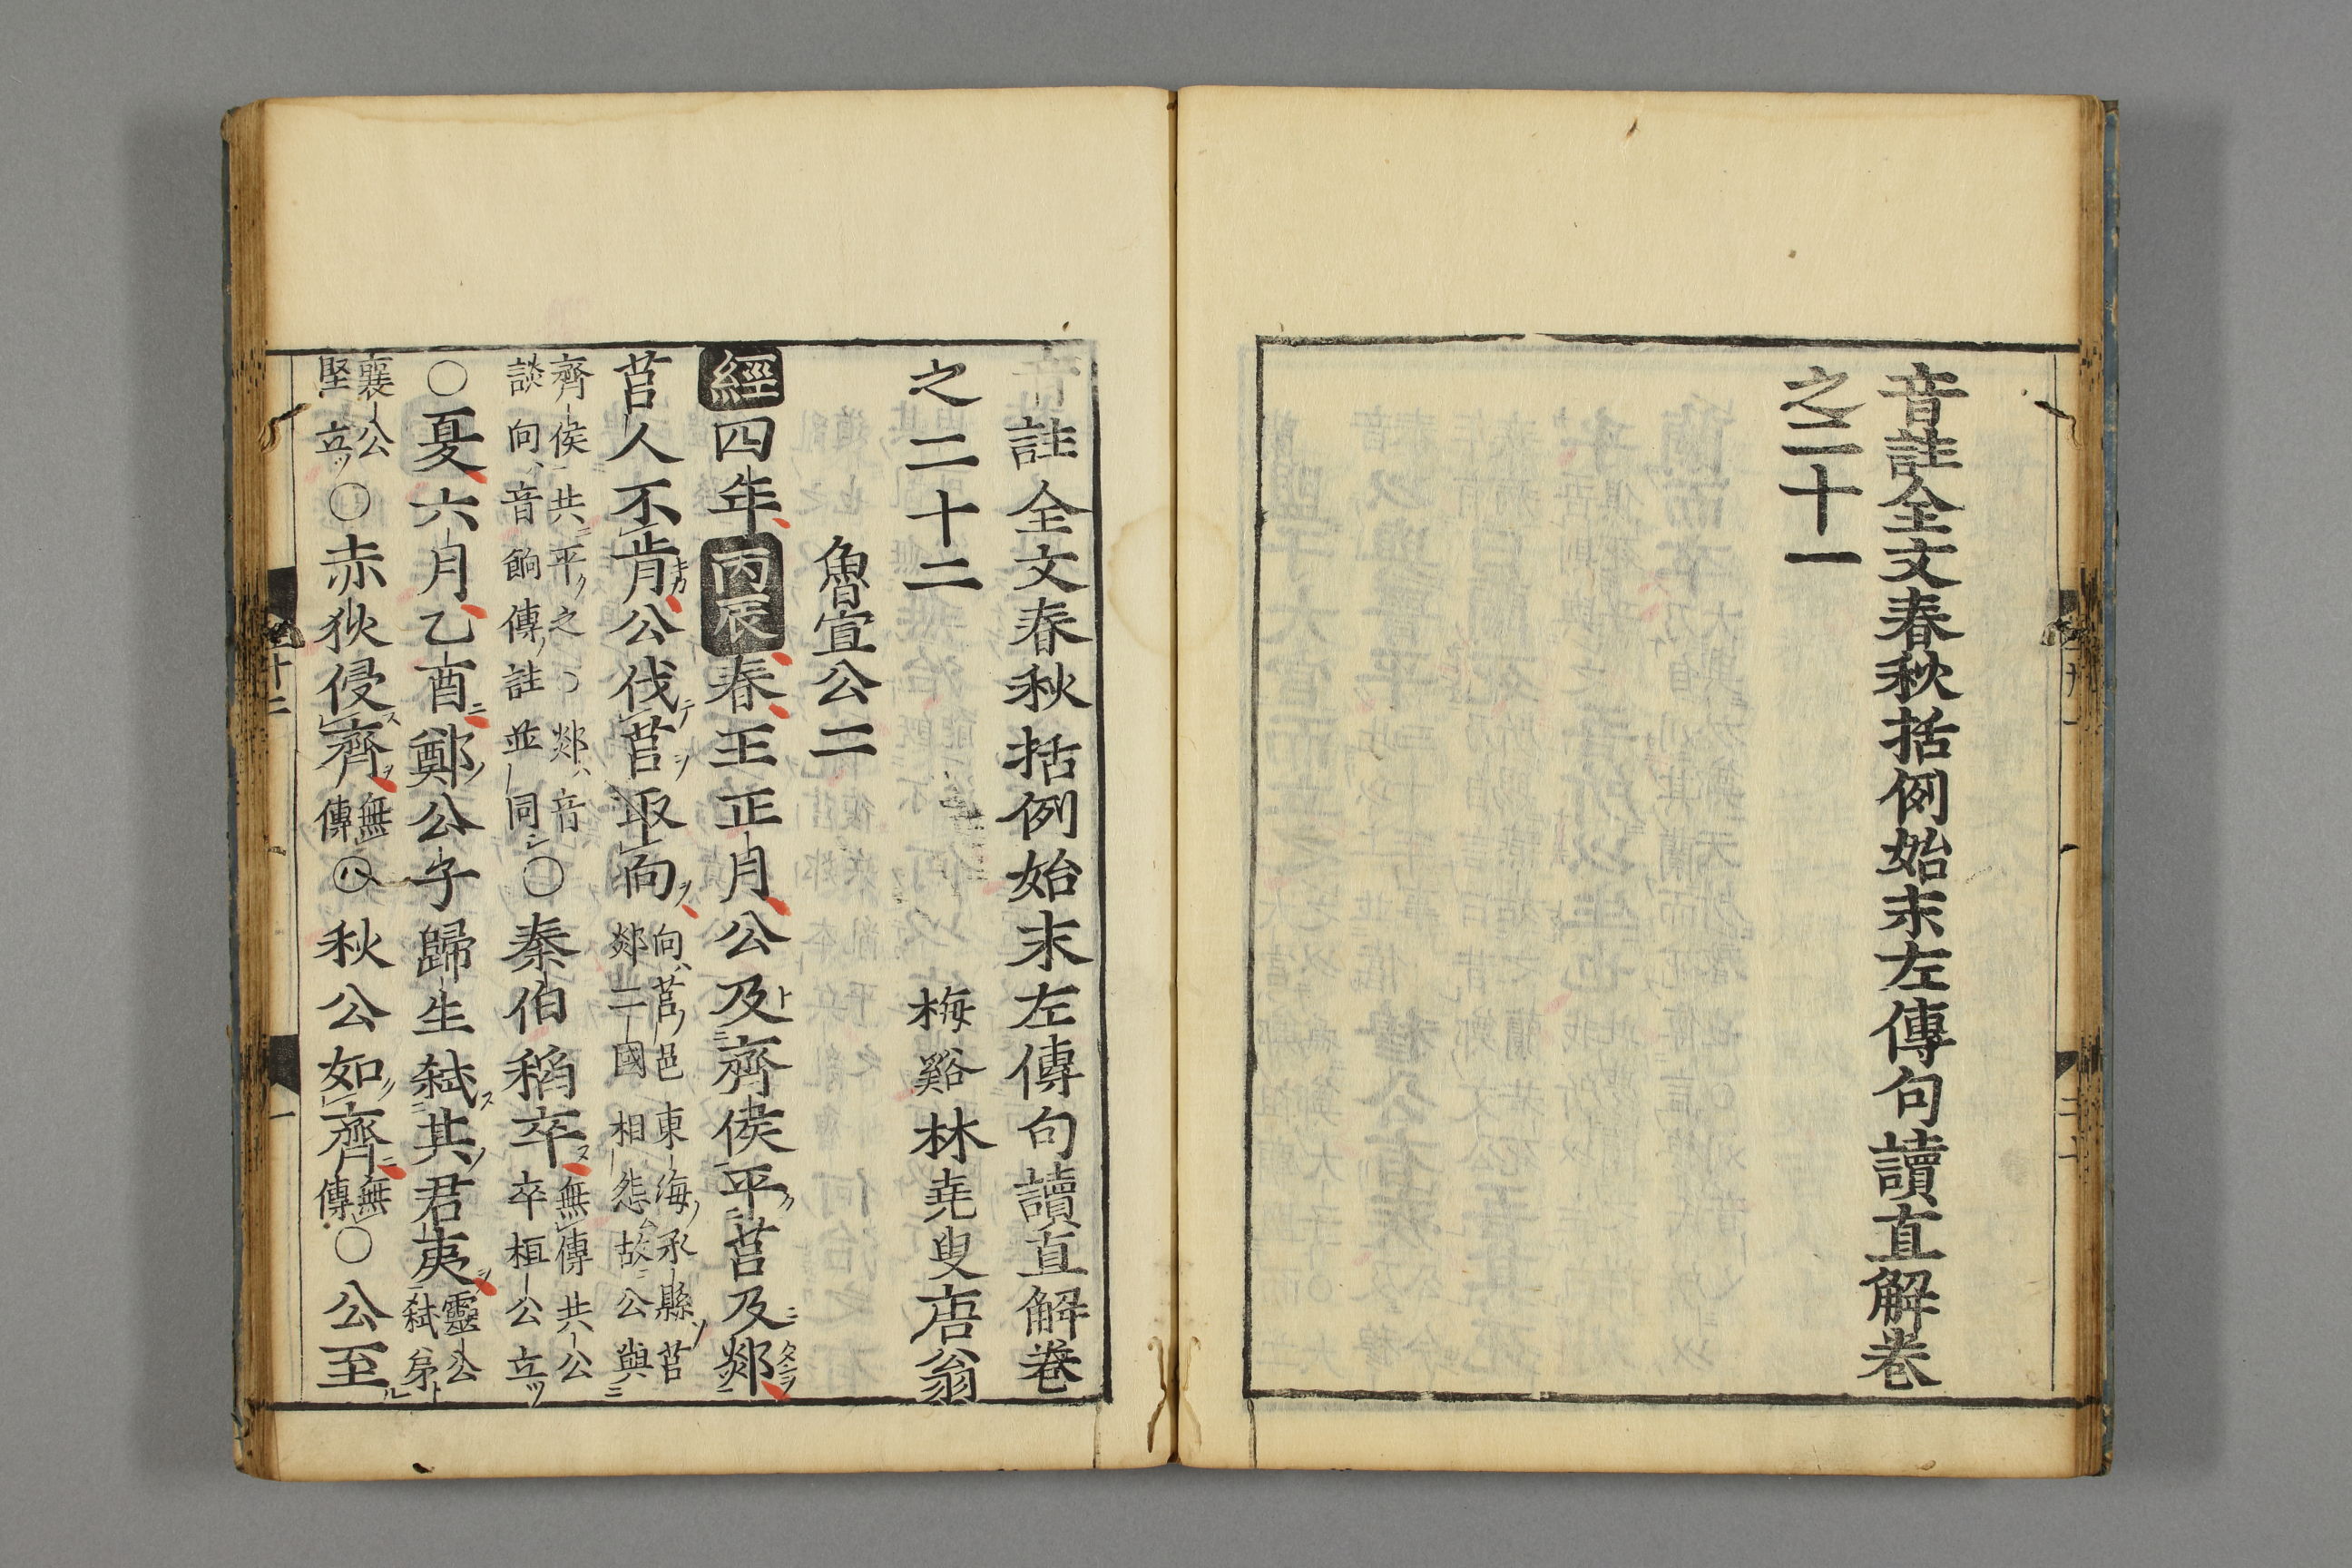 音註全文春秋括例始末左傳句讀直解卷
之二十一
音註全文春秋括例始末左傳句讀直解卷
之二十二　梅谿林尭叟唐翁
魯宣公二
經四年丙辰春王正月公及齊侯平莒及郯
莒人不肯公伐莒取向向莒邑東海承縣莒郯二國相怨故公與
齊侯共平之○郯音談向音餉傳註並同○秦伯稻卒無傳共公卒桓公立
○夏六月乙酉鄭公子歸生弑其君夷靈公弑弟
襄公堅立○赤狄侵齊無傳○秋公如齊無傳○公至